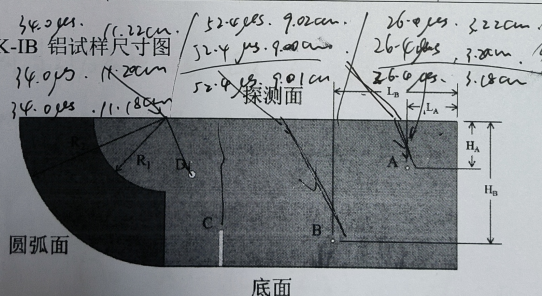 34.0μs. 11.22cm / 52.4μs. 9.02cm. / 26.4μs. 3.22cm.
K-IB 铝试样尺寸图 52.4μs. 9.00cm 26.4μs. 3.20cm.
34.0μs. 11.20cm 52.4μs. 9.01cm 26.0μs. 3.18cm
34.0μs. 11.18cm
探测面
L_B
L_A
H_A
H_B
R
R₁
D
A
C
B
圆弧面
底面